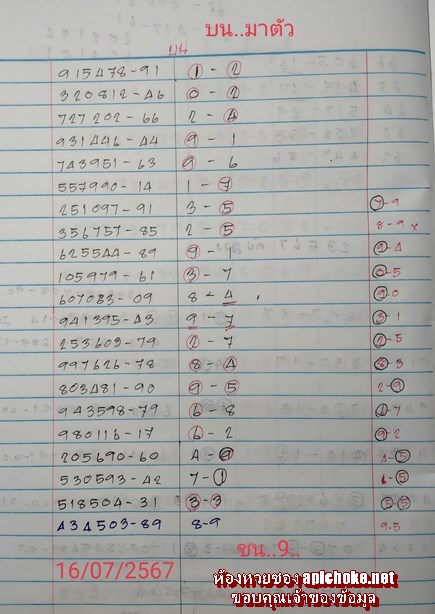 บน..มาตัว
บน
915478-91 1-2
320812-46 0-2
727202-66 2-4
931446-44 9-1
743951-63 9-6
557990-14 1-7
251097-91 3-5 7-9
356757-85 2-5 8-9 x
625544-89 9-1 9-4
105979-61 3-7 0-5
607083-09 8-4 9-0
941395-43 9-7 3-1
253603-79 2-7 2-5
997626-78 8-4 8-3
803481-90 9-5 2-9
943598-79 6-8 1-7
980116-17 6-2 9-2
205690-60 4-9 1-5
530593-42 7-1 6-5
518504-31 3-3 5-5
434503-89 8-9 9.5
ชน..9..
16/07/2567
ห้องหวยซอง apichoke.net
ขอบคุณเจ้าของข้อมูล